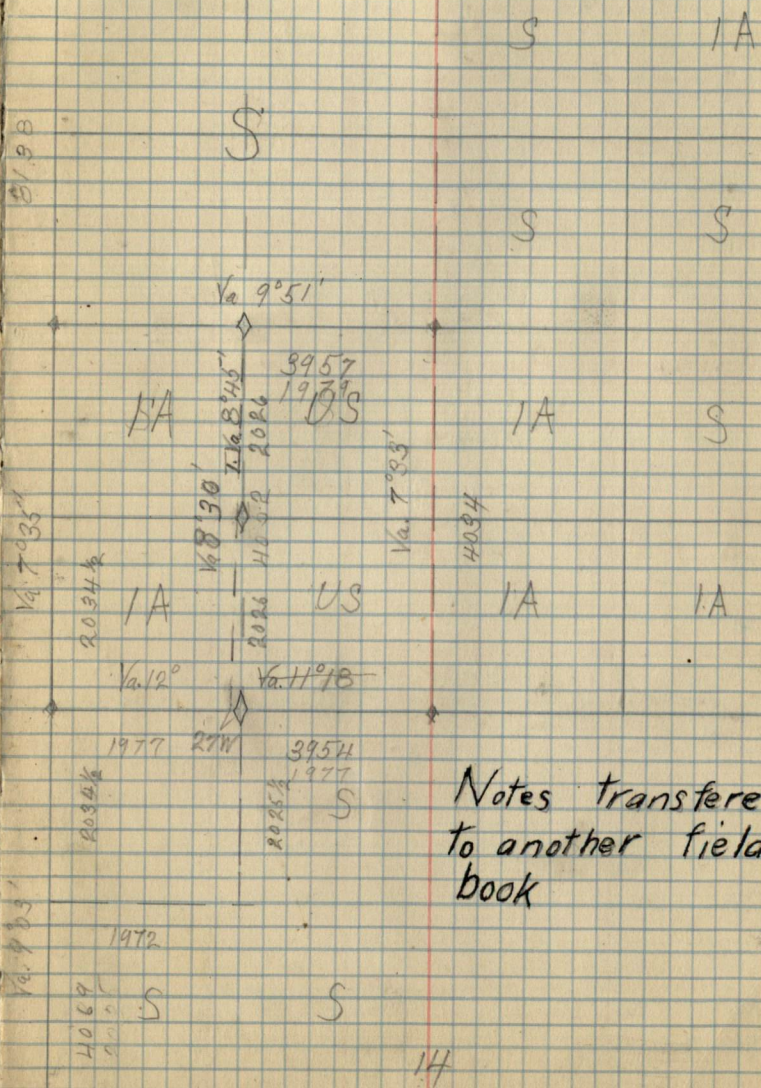 S 1A
S
81.98
S S
Va 9°51'
3957
1979
1A
T. Va. 8°45'
2026
US
1A
S
Va 8°30'
Va. 7°33'
4052
4034
Va. 7°35'
2034½
1A
2026
US
1A
1A
Va. 12°
Va. 11°18
1977
27W
3954
1977
2034½
2025½
S
Notes transfere
to another field
book
Va. 9°03'
1972
4069
S
S
14